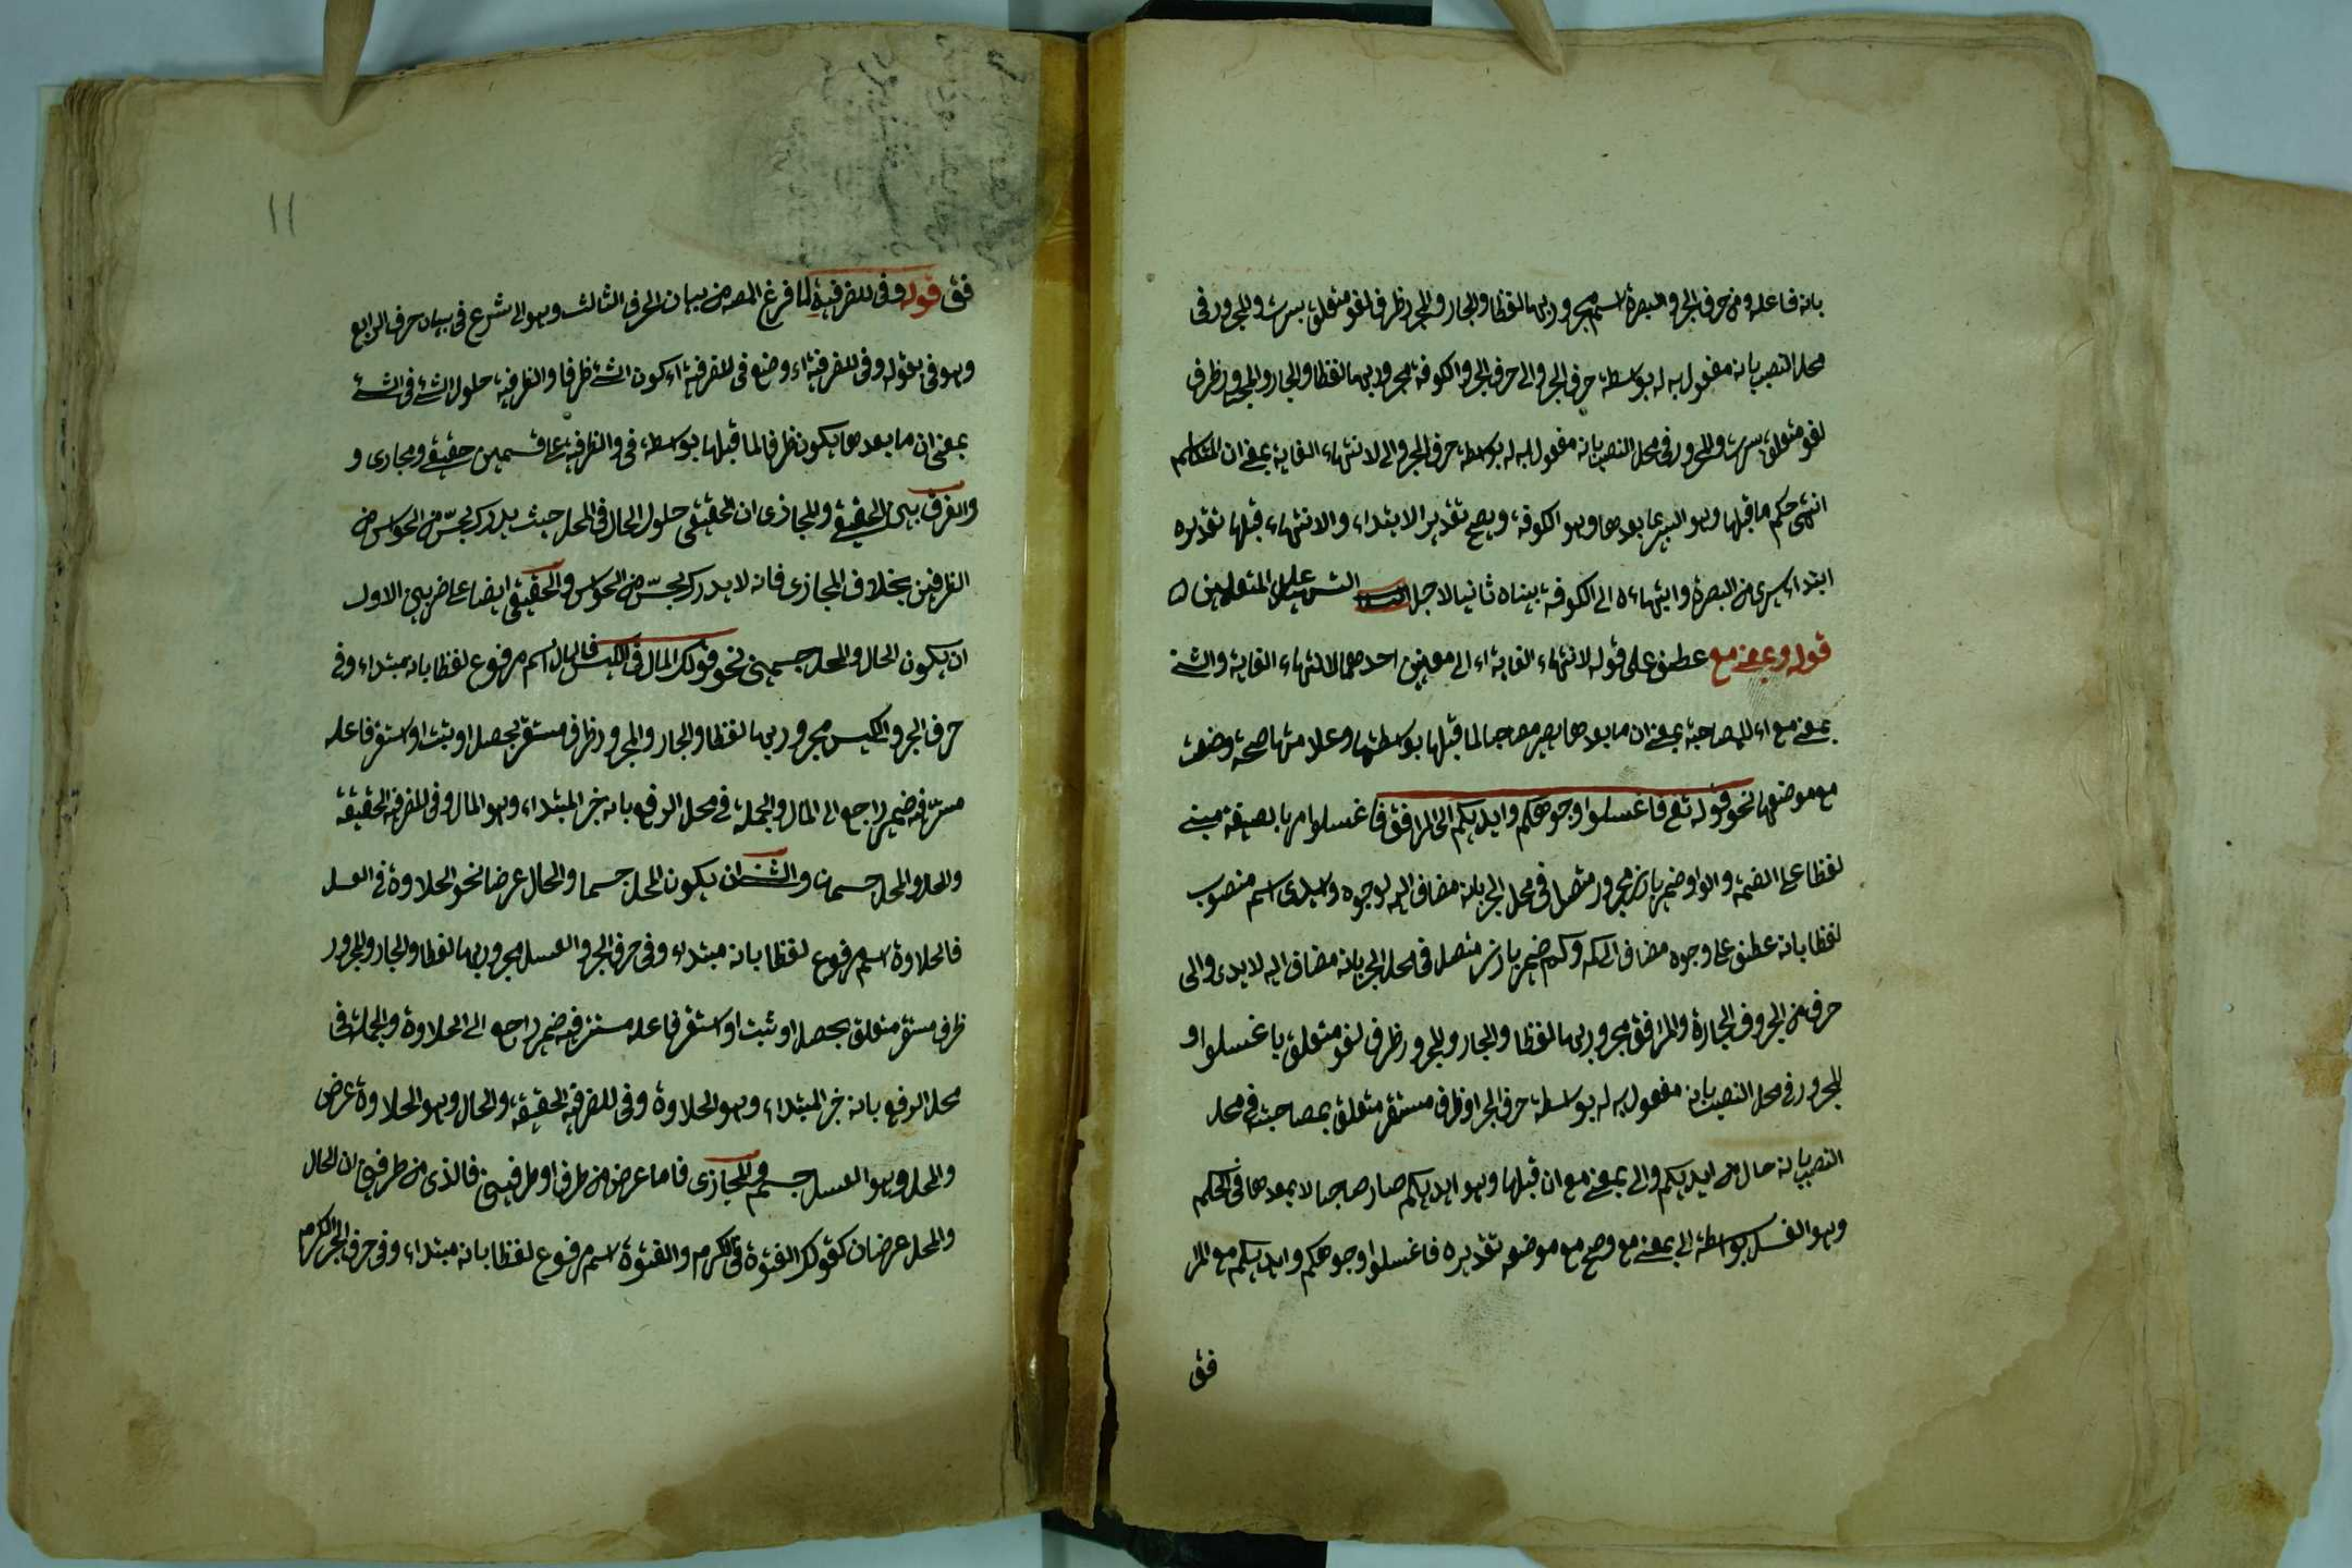 بانه فاعله ومن حرف الجر والبصرة اسم مجرور بها لفظا والجار والمجرور ظرف لغو متعلق بسرت والمجرور فى
محل النصب بانه مفعول به له بواسطة حرف الجر والى حرف الجر والكوفة مجرور بها لفظا والجار والمجرور ظرف
لغو متعلق بسرت والمجرور فى محل النصب بانه مفعول به له بواسطة حرف الجر والى لانتهاء الغاية بمعنى ان المتكلم
انتهى حكم ما قبلها وهو السير بما بعدها وهو الكوفة ويصح تقدير الابتداء والانتهاء قبلها تقديره
ابتداء سيرى من البصرة وانتهاءه الى الكوفة بيناه ثانيا لاجل التسهيل على المتعلمين
قوله وبمعنى مع عطف على قوله لانتهاء الغاية اى الى معنيين احدهما لانتهاء الغاية والثنى
بمعنى مع اى للمصاحبة بمعنى ان ما بعدها يصير مصاحبا لما قبلها بواسطتها وعلامتها صحة وضعت
مع موضعها نحو قوله تع فاغسلوا وجوهكم وايديكم الى المرافق فاغسلوا امر بالصيغة مبنى
لفظا على الضمة والواو ضمير بارز مجرور متصل فى محل الجر بانه مضاف اليه لوجوه وايدى اسم منصوب
لفظا بانه عطف على وجوه مضاف الى كم وكم ضمير بارز متصل فى محل الجر بانه مضاف اليه لايدى والى
حرف من الحروف الجارة والمرافق مجرور بها لفظا والجار والمجرور ظرف لغو متعلق باغسلوا و
المجرور فى محل النصب بانه مفعول به له بواسطة حرف الجر او ظرف مستقر متعلق بمصاحبة فى محل
النصب بانه حال من ايديكم والى بمعنى مع ان قبلها وهو ايديكم صار مصاحبا لا بعدها فى الحكم
وهو الغسل بواسطة الى بمعنى مع وصح مع موضعه تقديره فاغسلوا وجوهكم وايديكم مع المر
فق
١١
فق قوله وفى للظرفية لما فرغ المصه من بيان الحرف الثالث وهو الى شرع فى بيان حرف الرابع
وهو فى بقوله وفى للظرفية اى وضع فى للظرفية اى كون الشئ ظرفا والظرفية حلول الشئ فى الشئ
بمعنى ان ما بعدها يكون ظرفا لما قبلها بواسطة فى والظرفية على قسمين حقيقى ومجازى و
والفرق بين الحقيقى والمجازى ان الحقيقى حلول الحال فى المحل حيث يدرك بحسّ من الحواس من
الظرفين بخلاف المجازى فانه لا يدرك بحسّ من الحواس والحقيقى ايضا على ضربين الاول
ان يكون الحال والمحل جسمين نحو قولك المال فى الكيس فالمال اسم مرفوع لفظا بانه مبتداء وفى
حرف الجر والكيس مجرور بها لفظا والجار والمجرور ظرف مستقر بحصل او ثبت او استقر فاعله
مستتر فيه ضمير راجع الى المال والجملة فى محل الرفع بانه خبر المبتداء وهو المال وفى للظرفية الحقيقة
والحال والمحل جسمان والثنى ان يكون المحل جسما والحال عرضا نحو الحلاوة فى العسل
فالحلاوة اسم مرفوع لفظا بانه مبتداء وفى حرف الجر والعسل مجرور بها لفظا والجار والمجرور
ظرف مستقر متعلق بحصل او ثبت او استقر فاعله مستتر فيه ضمير راجع الى الحلاوة والجملة فى
محل الرفع بانه خبر المبتداء وهو الحلاوة وفى للظرفية الحقيقة والحال وهو الحلاوة عرض
والمحل وهو العسل جسم والمجازى فاما عرض من طرف او طرفين فالذى من طرفين ان الحال
والمحل عرضان كقولك الفتوة فى الكرم والفتوة اسم مرفوع لفظا بانه مبتداء وفى حرف الجر الكرم